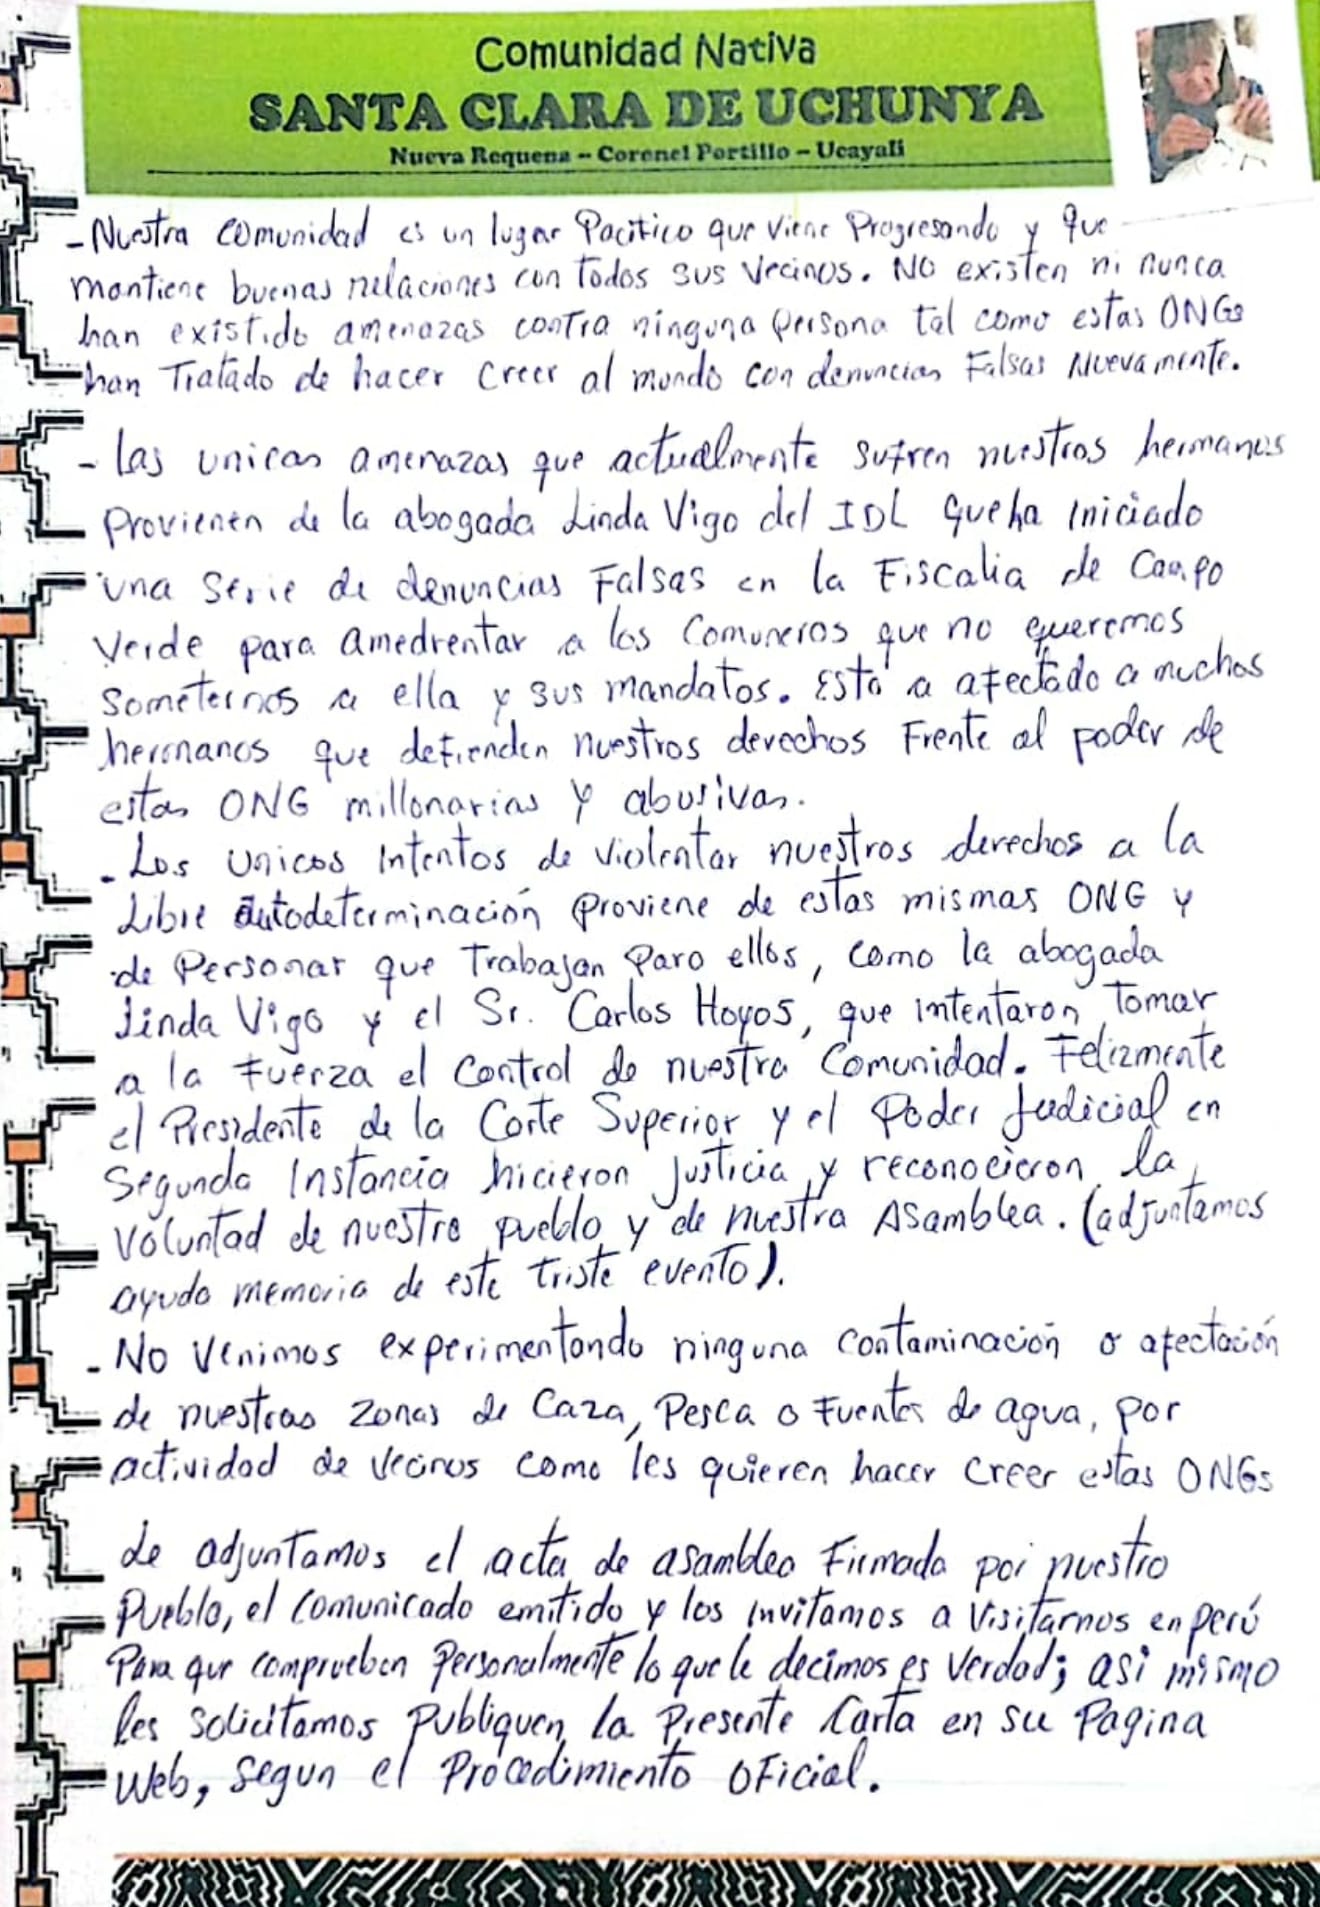 Comunidad Nativa
SANTA CLARA DE UCHUNYA
Nueva Requena - Coronel Portillo - Ucayali
- Nuestra comunidad es un lugar Pacifico que viene Progresando y que
mantiene buenas relaciones con todos sus vecinos. No existen ni nunca
han existido amenazas contra ninguna persona tal como estas ONGs
han Tratado de hacer creer al mundo con denuncias Falsas Nuevamente.
- Las unicas amenazas que actualmente sufren nuestros hermanos
Provienen de la abogada Linda Vigo del IDL que ha iniciado
una serie de denuncias Falsas en la Fiscalia de Campo
Verde para amedrentar a los comuneros que no queremos
someternos a ella y sus mandatos. Esto a afectado a muchos
hermanos que defienden nuestros derechos Frente al poder de
estas ONG millonarias y abusivas.
- Los unicos Intentos de violentar nuestros derechos a la
Libre autodeterminación proviene de estas mismas ONG y
de Personas que Trabajan Para ellos, como la abogada
Linda Vigo y el Sr. Carlos Hoyos, que intentaron Tomar
a la Fuerza el control de nuestra Comunidad. Felizmente
el Presidente de la Corte Superior y el Poder Judicial en
Segunda Instancia hicieron justicia y reconocieron la
voluntad de nuestro pueblo y de nuestra Asamblea. (adjuntamos
ayuda memoria de este triste evento).
- No venimos experimentando ninguna contaminación o afectación
de nuestras zonas de Caza, Pesca o Fuentes de agua, por
actividad de vecinos como les quieren hacer creer estas ONGs
Le adjuntamos el acta de asamblea Firmada por nuestro
Pueblo, el comunicado emitido y los invitamos a visitarnos en perú
Para que comprueben Personalmente lo que le decimos es verdad; asi mismo
les solicitamos Publiquen la Presente Carta en su Pagina
Web, segun el Procedimiento oficial.